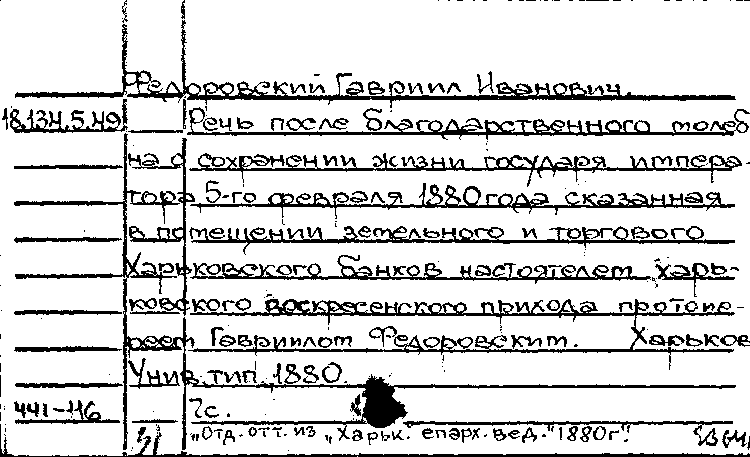 Федоровский Гавриил Иванович.
18.134.5.49 Речь после благодарственного молеб
на о сохранении жизни государя импера-
тора, 5-го февраля 1880 года, сказанная
в помещении земельного и торгового
Харьковского банков настоятелем харь-
ковского воскресенского прихода протоие-
реем Гавриилом Федоровским. Харьков
Унив. тип., 1880.
441-116 7с.
„Отд. отт. из „Харьк. епарх. вед." 1880г."